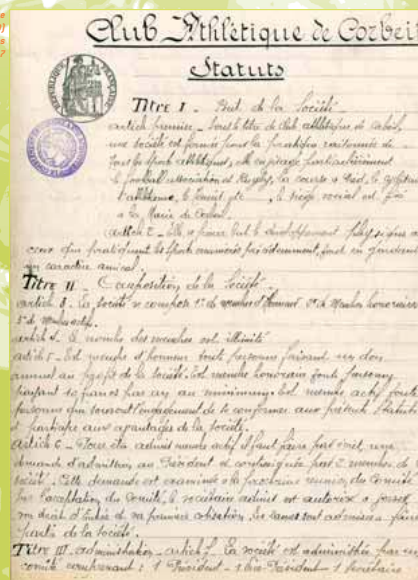 Club Athlétique de Corbeil
Statuts
RÉPUBLIQUE FRANÇAISE
Titre I - But de la Société
article premier - Sous le titre de Club athlétique de Corbeil,
une société est formée pour la pratique raisonnée de
tous les sports athlétiques, elle envisage particulièrement
le football association et Rugby, la course à pied, le cyclisme
l'athlétisme, le tennis, etc , le siège social est fixé
à la Mairie de Corbeil.
article 2 - Elle a pour but le développement physique de
ceux qui pratiquent les sports énoncés précédemment, tout en gardant
un caractère amical.
Titre II - Composition de la Société
article 3. La société se compose 1° de membres d'honneur 2° de Membres honoraires
3° de Membres actifs.
article 4. le nombre des membres est illimité
article 5. Est membre d'honneur toute personne faisant un don
annuel au profit de la société. Est membre honoraire toute personne
payant 10 francs par an au minimum. Est membre actif toute
personne qui souscrit l'engagement de se conformer aux présents Statuts
et participe aux avantages de la société.
article 6 - Pour être admis membre actif il faut faire par écrit, une
demande d'admission au Président et contresignée par 2 membres de la
société. Cette demande est examinée à la prochaine réunion du Comité
Sur l'acceptation du Comité, le sociétaire admis est autorisé à
son droit d'entrée et sa première cotisation. Les dames sont admises à faire
partie de la société.
Titre III. administration - article 7. La société est administrée par un
comité comprenant : 1 Président - 1 Vice-Président 1 Secrétaire